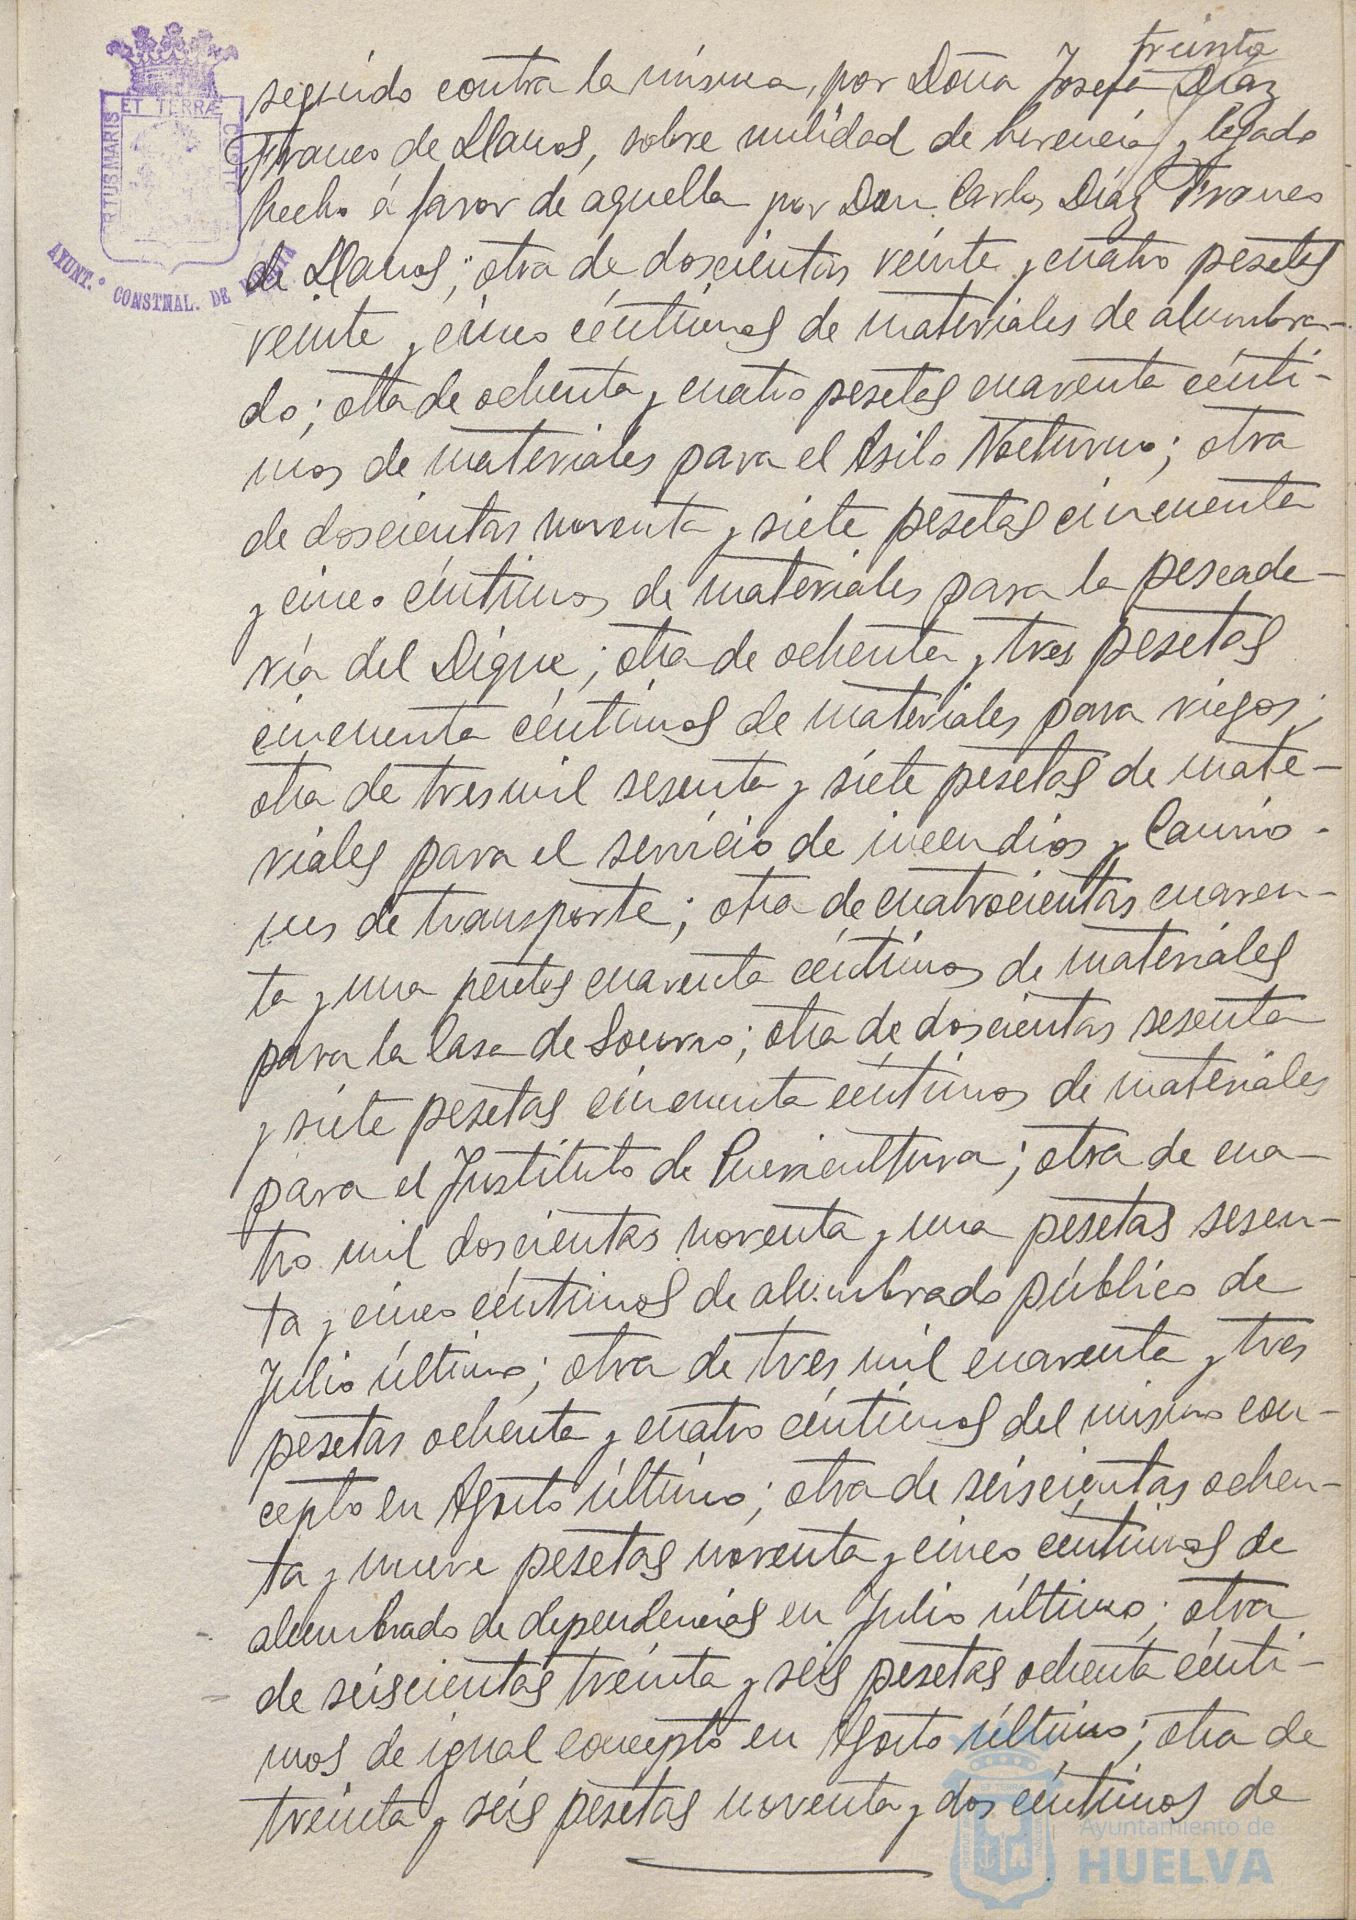 treinta
seguido contra la misma, por Doña Josefa Díaz
Franco de Llanos, sobre nulidad de herencia y legado
hecho á favor de aquella por Don Carlos Díaz Franco
de Llanos; otra de doscientas veinte y cuatro pesetas
veinte y cinco céntimos de materiales de alumbra-
do; otra de ochenta y cuatro pesetas cuarenta cénti-
mos de materiales para el Asilo Nocturno; otra
de doscientas noventa y siete pesetas cincuenta
y cinco céntimos de materiales para la pescade-
ría del Dique; otra de ochenta y tres pesetas
cincuenta céntimos de materiales para riegos;
otra de tres mil sesenta y siete pesetas de mate-
riales para el servicio de incendios y Camio-
nes de transporte; otra de cuatrocientas cuaren-
ta y una pesetas cuarenta céntimos de materiales
para la Casa de Socorro; otra de doscientas sesenta
y siete pesetas cincuenta céntimos de materiales
para el Instituto de Puericultura; otra de cua-
tro mil doscientas noventa y una pesetas sesen-
ta y cinco céntimos de alumbrado público de
Julio último; otra de tres mil cuarenta y tres
pesetas ochenta y cuatro céntimos del mismo con-
cepto en Agosto último; otra de seiscientas ochen-
ta y nueve pesetas noventa y cinco céntimos de
alumbrado de dependencias en Julio último; otra
de seiscientas treinta y seis pesetas ochenta cénti-
mos de igual concepto en Agosto último; otra de
treinta y seis pesetas noventa y dos céntimos de
PORTUS MARIS ET TERRÆ CUSTO
AYUNT.º CONSTNAL. DE HUELVA
Ayuntamiento de
HUELVA